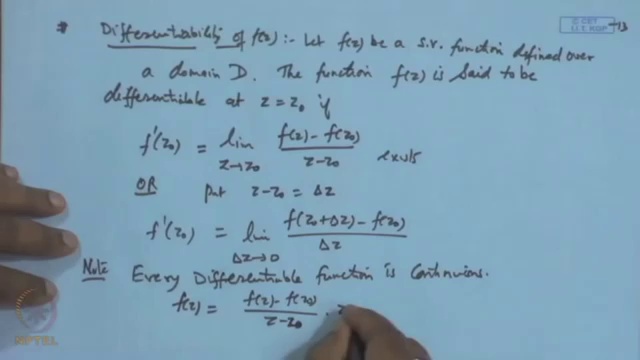 * Differentiability of f(z) :- Let f(z) be a s.v. function defined over
a domain D. The function f(z) is said to be
differentiable at z = z₀ if
f'(z₀) = lim_{z→z₀} (f(z) - f(z₀))/(z - z₀) exists
OR put z - z₀ = Δz
f'(z₀) = lim_{Δz→0} (f(z₀ + Δz) - f(z₀))/Δz
Note Every Differentiable function is continuous.
f(z) = (f(z) - f(z₀))/(z - z₀) .
© CET
I.I.T. KGP
NPTEL